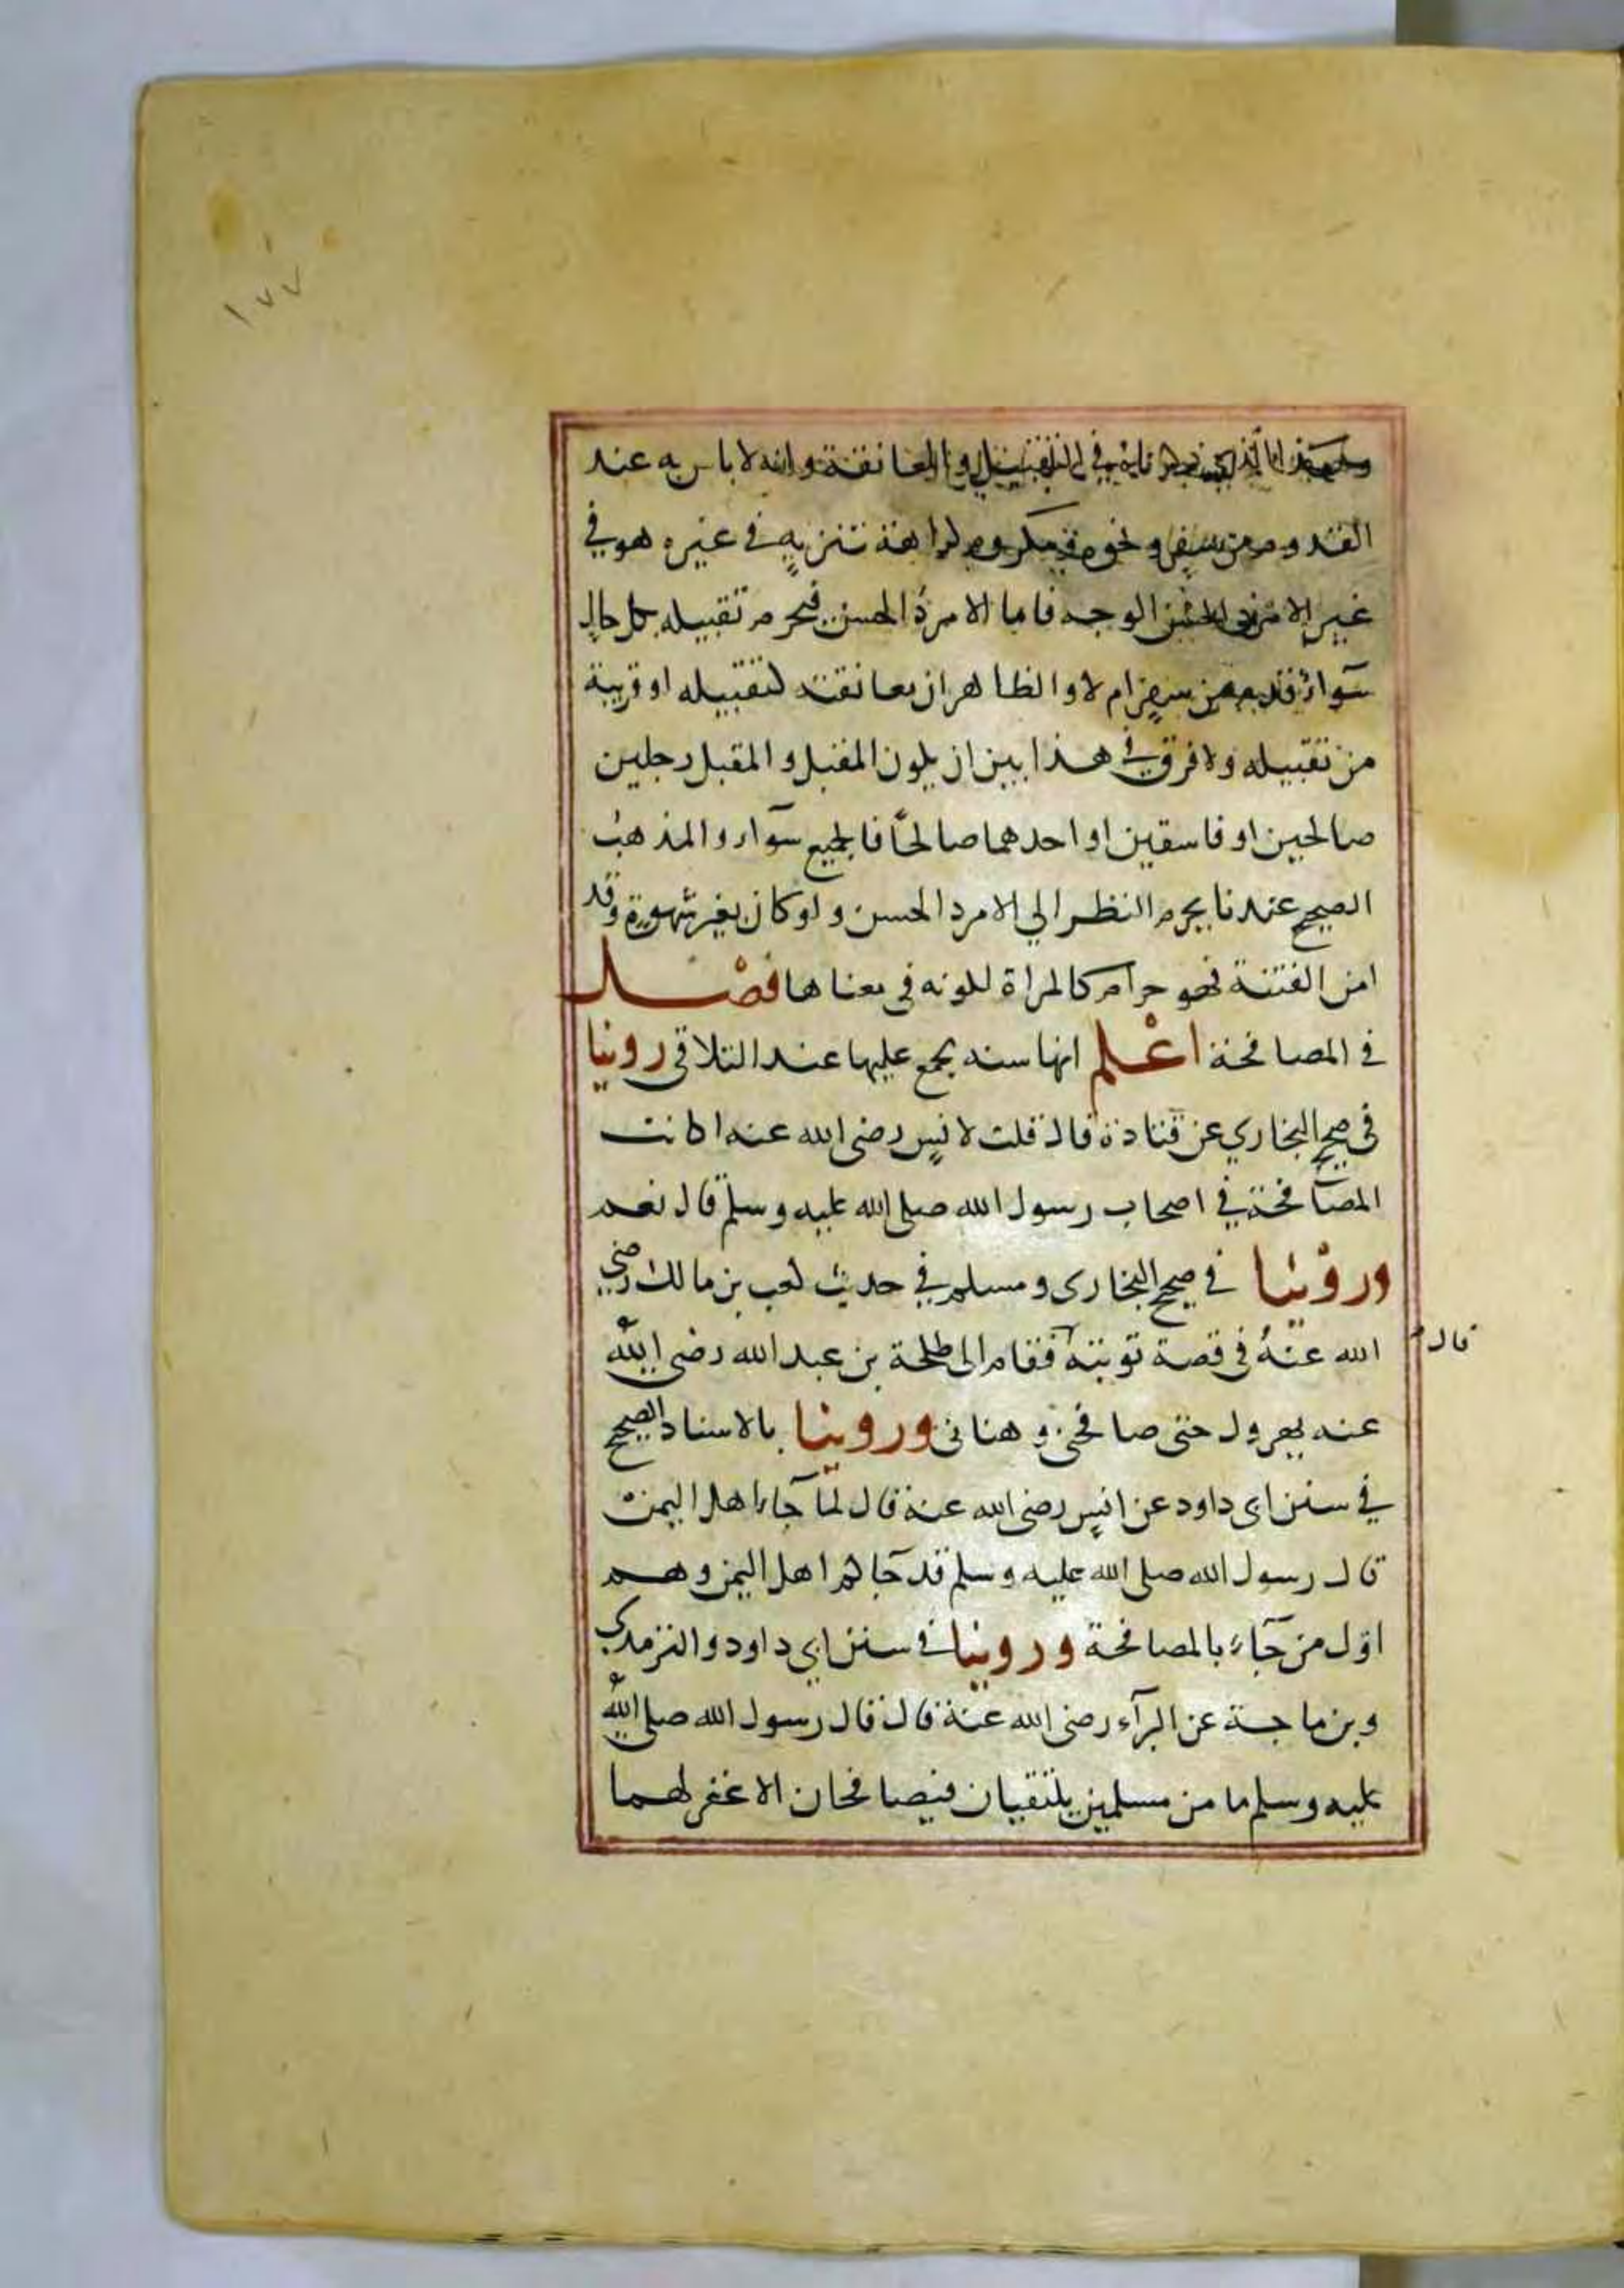 ١٧٧
وهذا الذي ذكرناه في التقبيل والمعانقة وانه لا باس به عند
القدوم من سفر ونحوه ومكروه كراهة تنزيه في غيره هو في
غير الامرد الحسن الوجه فاما الامرد الحسن فيحرم تقبيله بكل حال
سوآء قدم من سفر ام لا والظاهر ان معانقته كتقبيله او قريبة
من تقبيله ولا فرق في هذا بين ان يكون المقبل والمقبل رجلين
صالحين او فاسقين او احدهما صالحًا فالجميع سوآء والمذهب
الصحيح عندنا يحرم النظر الي الامرد الحسن ولو كان بغير شهوة وقد
امن الفتنة فهو حرام كالمراة لكونه في معناها فصل
في المصافحة اعلم انها سنة مجمع عليها عند التلاقي روينا
في صحيح البخاري عن قتادة قال قلت لانس رضي الله عنه اكانت
المصافحة في اصحاب رسول الله صلى الله عليه وسلم قال نعم
وروينا في صحيح البخاري ومسلم في حديث كعب بن مالك رضي
الله عنه في قصة توبته فقام الى طلحة بن عبد الله رضي الله
قال
عنه يهرول حتى صافحني وهناني وروينا بالاسناد الصحيح
في سنن ابي داود عن انس رضي الله عنه قال لما جآء اهل اليمن
قال رسول الله صلى الله عليه وسلم قد جآكم اهل اليمن وهم
اول من جآء بالمصافحة وروينا في سنن ابي داود والترمذي
وبن ماجة عن البرآء رضي الله عنه قال قال رسول الله صلى الله
عليه وسلم ما من مسلمين يلتقيان فيصافحان الا غفر لهما